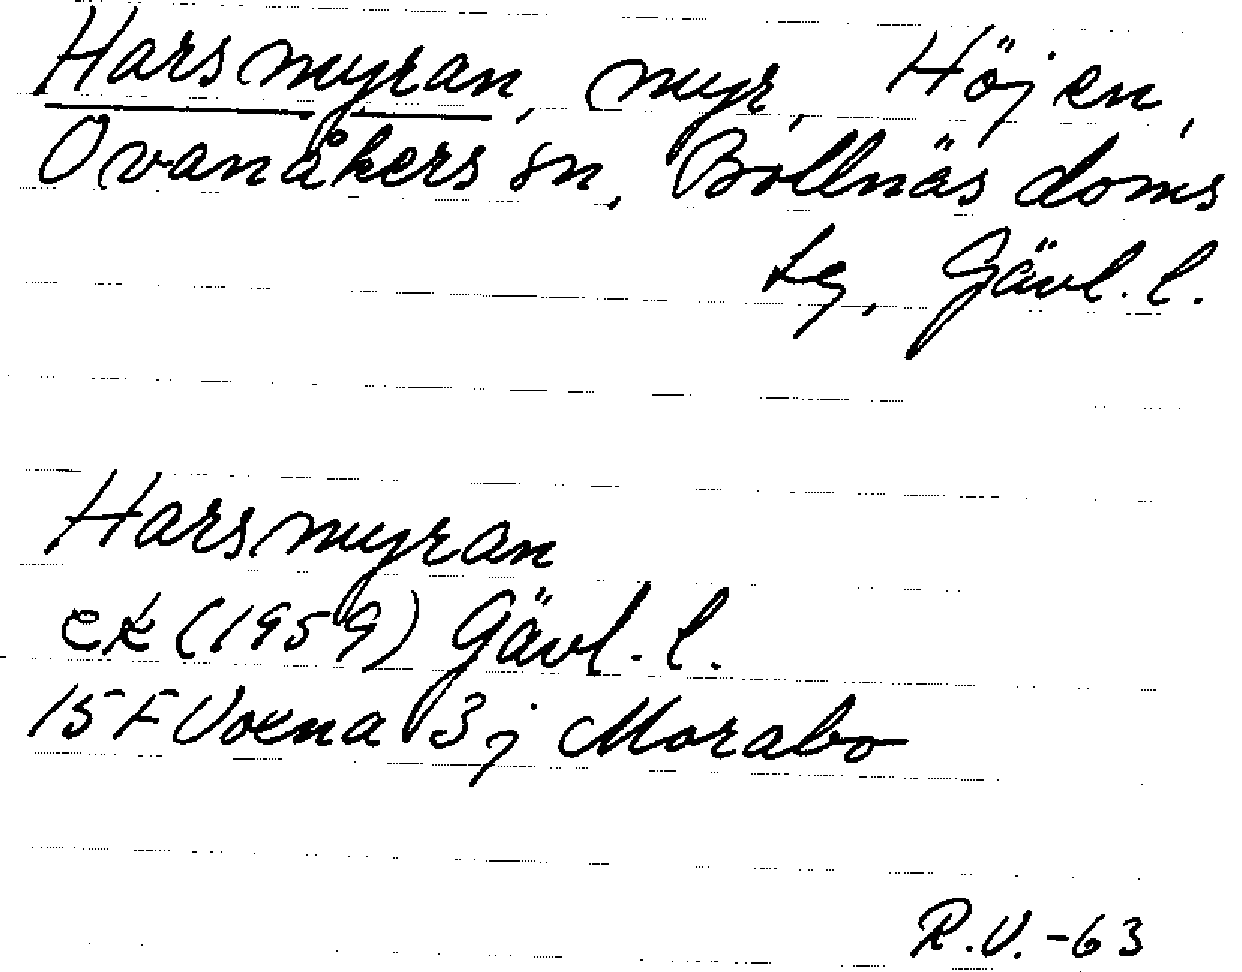 Harsmyran, myr, Höjen,
Ovanåkers sn, Bollnäs doms
tg, Gävl. l.
Harsmyran
ek (1959) Gävl. l.
15 F Voxna 3 j Morabo
R.V. -63